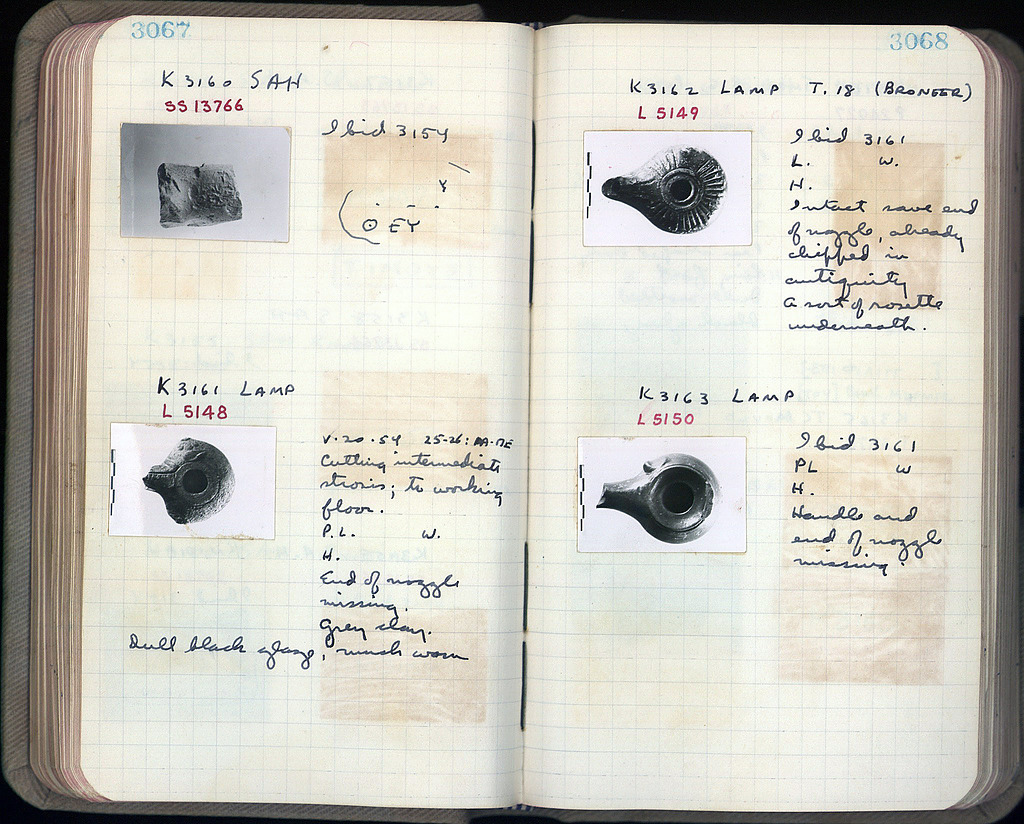 3067
K 3160 SAH
SS 13766
Ibid 3154
Y
ΘEY
K 3161 LAMP
L 5148
V·20·54 25-26:
Cutting intermediate
strosis; to working
floor.
P.L. W.
H.
End of nozzle
missing.
Grey clay.
Dull black glaze, much worn
3068
K3162 LAMP T. 18 (BRONEER)
L 5149
Ibid 3161
L. W.
H.
Intact save end
of nozzle, already
chipped in
antiquity
A sort of rosette
underneath.
K 3163 LAMP
L 5150
Ibid 3161
PL W
H.
Handle and
end of nozzle
missing.